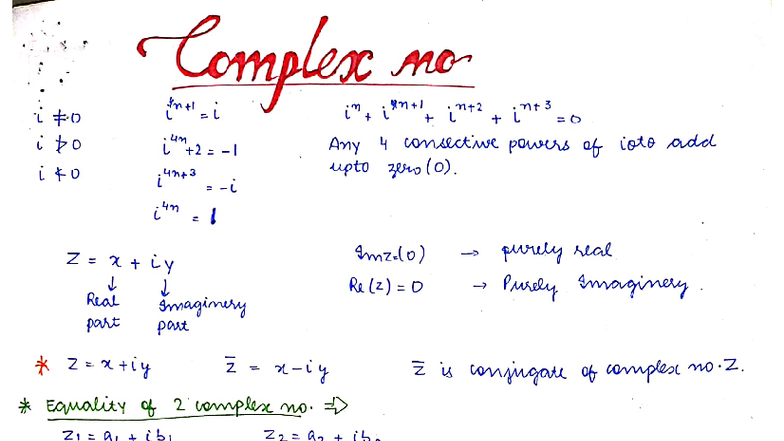 Complex no
i ≠ 0
i ≯ 0
i ≮ 0
i^4n+1 = i
i^4n+2 = -1
i^4n+3 = -i
i^4n = 1
i^n + i^n+1 + i^n+2 + i^n+3 = 0
Any 4 consective powers of ioto add
upto zero (0).
Z = x + iy
↓ ↓
Real Imaginery
part part
Imz=(0) → purely real
Re(z) = 0 → Purely Imaginery.
* Z = x+iy z̄ = x-iy z̄ is conjugate of complex no. Z.
* Equality of 2 complex no. ⇒
Z₁ = a₁ + ib₁ Z₂ = a₂ + ib₂